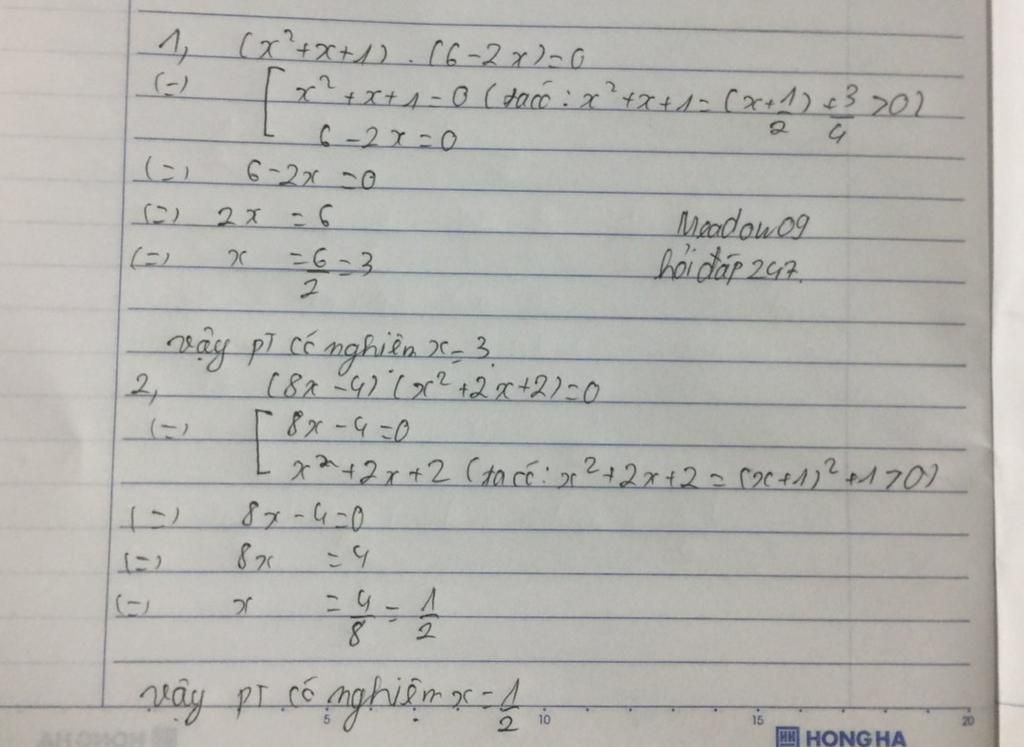 1, (x²+x+1).(6-2x)=0
(=) [ x²+x+1=0 (ta có: x²+x+1=(x+1/2)+3/4>0)
6-2x=0
(=) 6-2x=0
(=) 2x=6
Meadow09
(=) x=6/2=3
hỏi đáp 247.
vậy pT có nghiệm x=3.
2, (8x-4)(x²+2x+2)=0
(=) [ 8x-4=0
x²+2x+2 (ta có: x²+2x+2=(x+1)²+1>0)
(=) 8x-4=0
(=) 8x=4
(=) x=4/8=1/2
vậy pT có nghiệm x=1/2
5 10 15 20
HK HONG HA